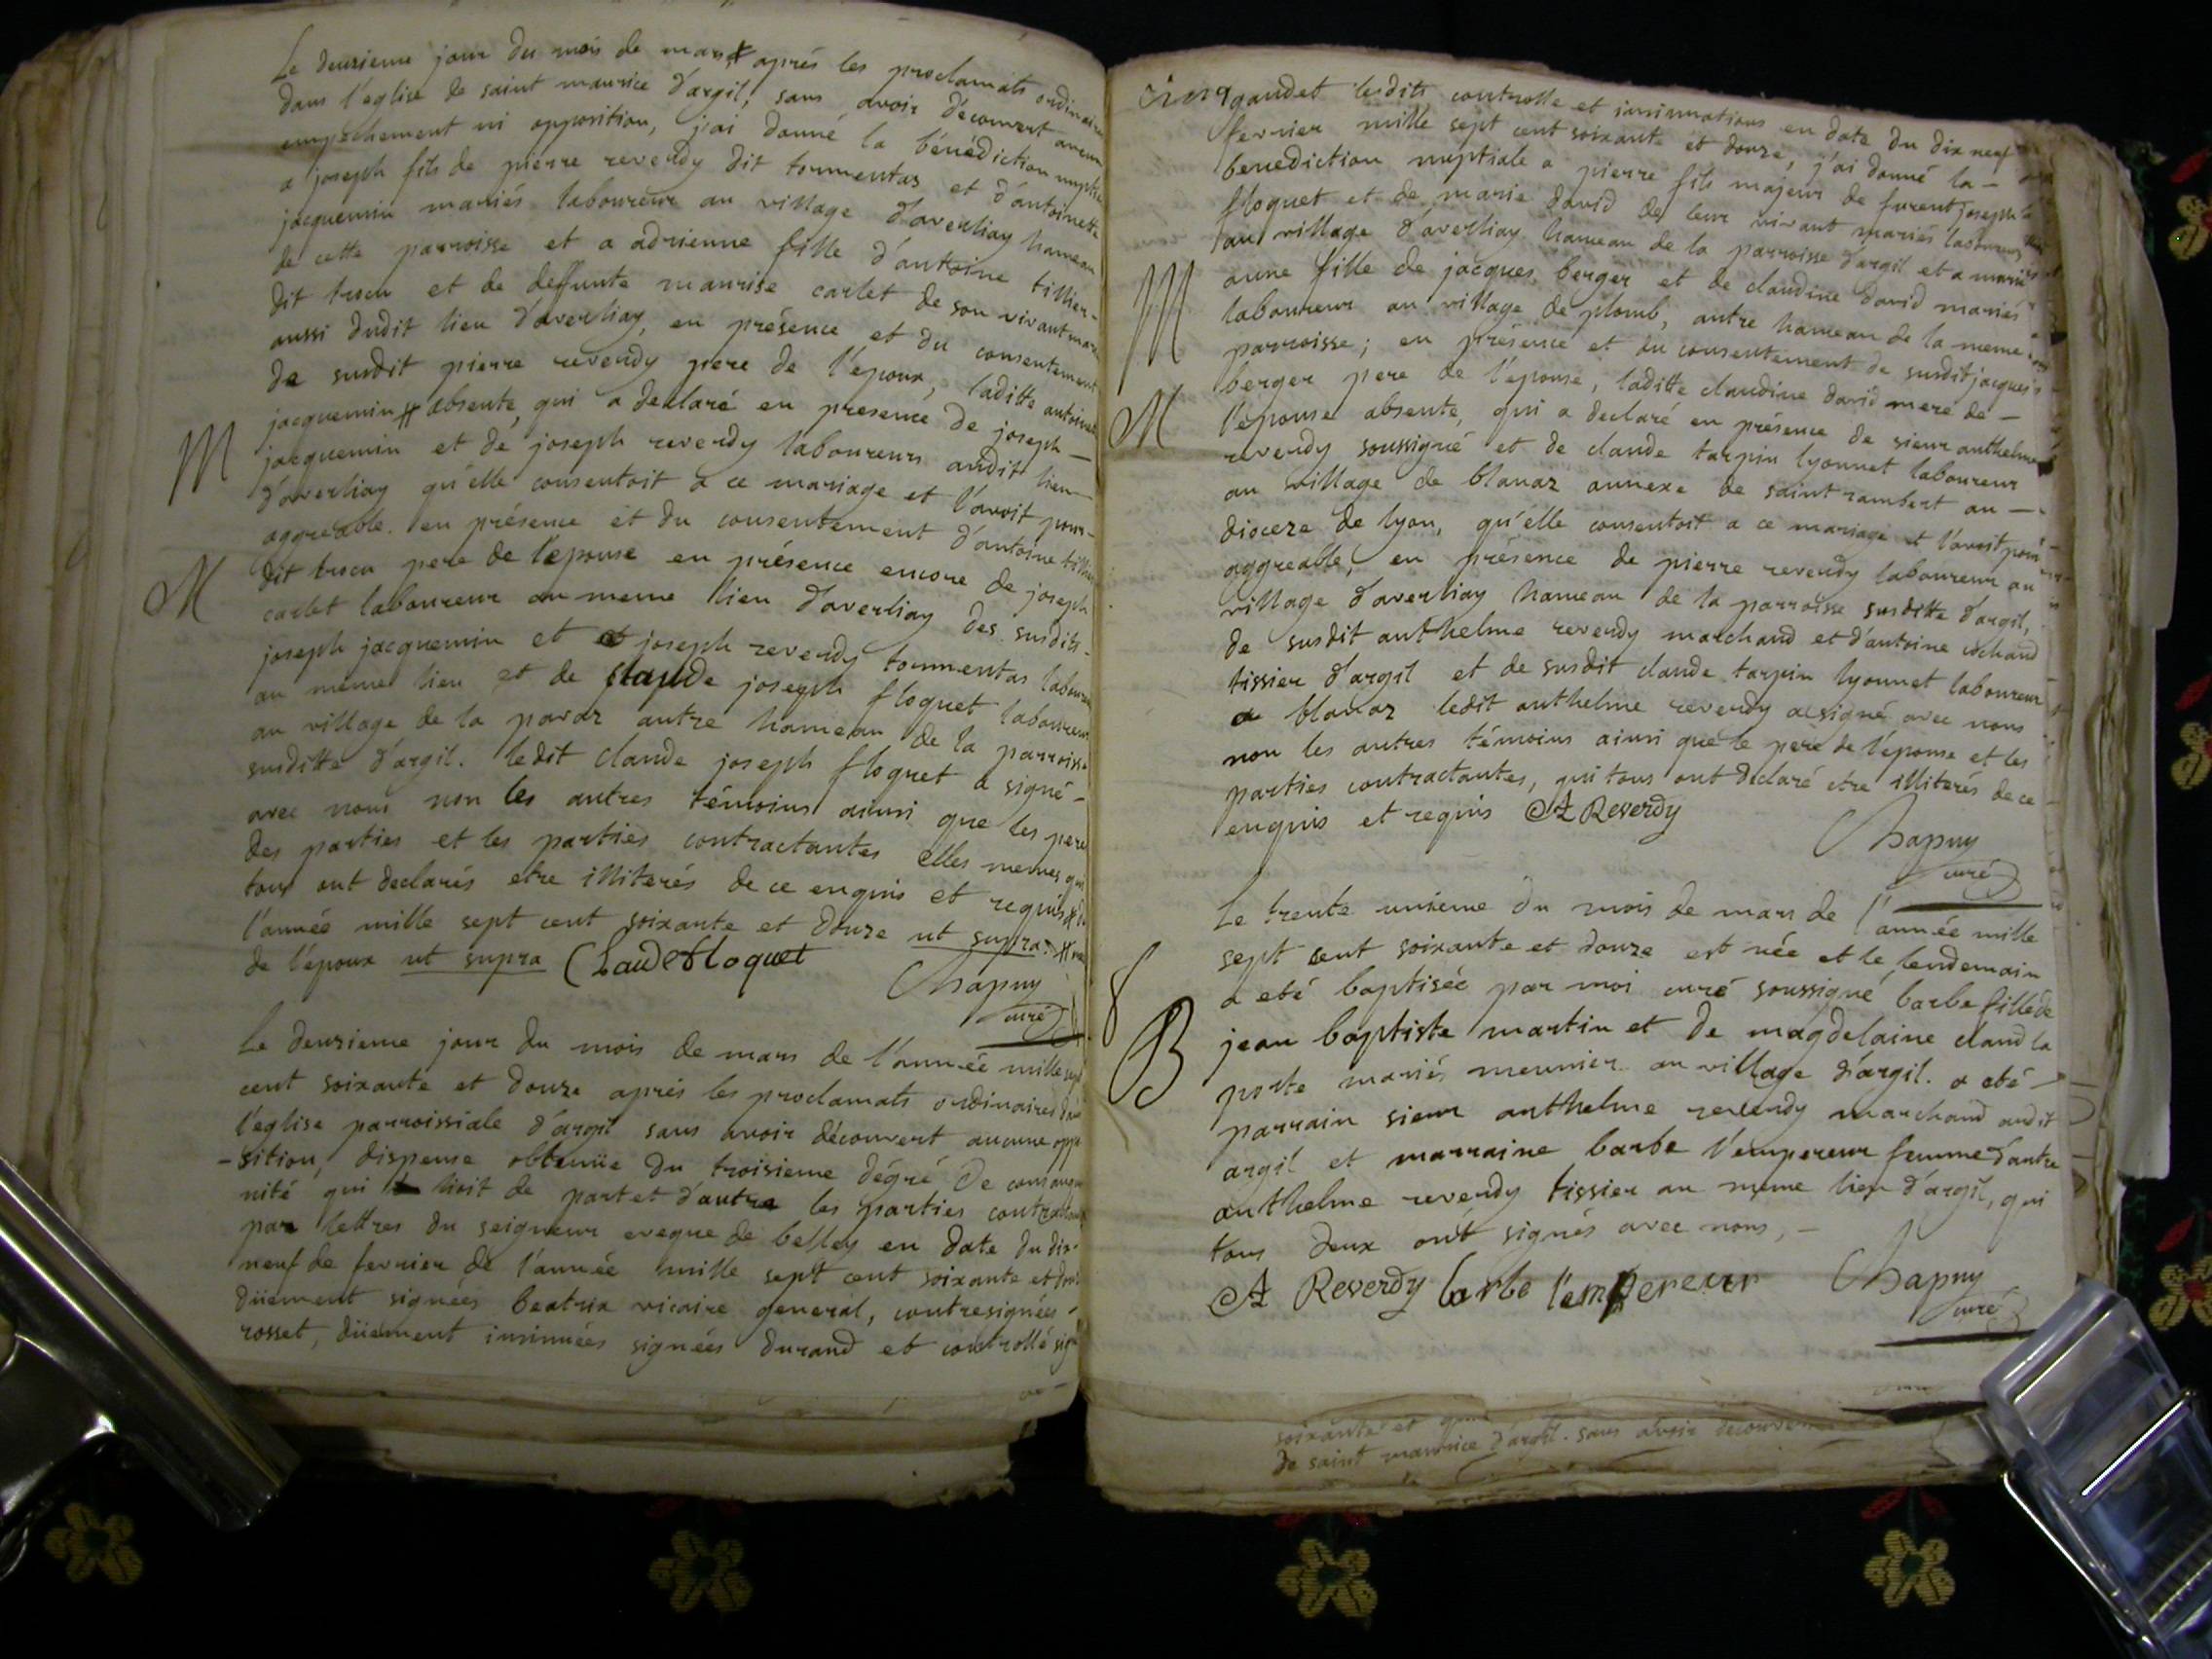 Le deuzieme jour du mois de mars # aprés les proclamats ordinaires
dans l'eglise de saint maurice d'argil, sans avoir découvert aucun
empechement ni opposition, j'ai donné la bénédiction nuptiale
a joseph fils de pierre reverdy dit tourmentas et d'antoinette
jacquemin mariés laboureur au village d'averliay hameau
de cette parroisse et a adrienne fille d'antoine tillier-
dit trocu et de deffunte maurise carlet de son vivant
aussi dudit lieu d'averliay, en présence et du consentement
de susdit pierre reverdy pere de l'epoux, laditte antoinette
jacquemin # absente, qui a declaré en presence de joseph —
M
jacquemin et de joseph reverdy laboureurs audit lieu —
d'averliay qu'elle consentoit a ce mariage et l'avoit pour-
aggreable. en présence et du consentement d'antoine tillier
M
dit trocu pere de l'epouse en présence encore de joseph
carlet laboureur au meme lieu d'averliay des susdits-
joseph jacquemin et joseph reverdy tourmentas laboureurs
au meme lieu et de claude joseph floquet laboureur
au village de la pavaz autre hameau de la parroisse
susditte d'argil. ledit claude joseph floquet a signé-
avec nous non les autres témoins ainsi que les peres
des parties et les parties contractantes elles memes qui
tous ont declarés etre illiterés de ce enquis et requis # de
l'année mille sept cent soixante et douze ut supra. #
de l'époux ut supra Claude floquet
Chapuy
curé
Le deuzieme jour du mois de mars de l'année mille sept
cent soixante et douze aprés les proclamats ordinaires dans
l'église parroissiale d'argil sans avoir découvert aucune oppo
-sition, dispense obtenüe du troisieme dégré de consangui
nité qui lioit de part et d'autre les parties contractantes
par lettres du seigneur eveque de belley en date du dix-
neuf de fevrier de l'année mille sept cent soixante et douze
düement signées beatrix vicaire general, contresignées-
rosset, düement insinuées signées durand et controllé signé
gaudet lesdits controlle et insinuations en date du dix neuf
fevrier mille sept cent soixante et douze, j'ai donné la —
benediction nuptiale a pierre fils majeur de furent joseph
floquet et de marie david de leur vivant mariés laboureurs
au village d'averliay hameau de la parroisse d'argil et a marie
M
anne fille de jacques berger et de claudine david mariés
laboureur au village de plomb, autre hameau de la meme
parroisse; en présence et du consentement de susdit jacques
berger pere de l'épouse, laditte claudine david mere de —
M
l'epouse absente, qui a declaré en présence de sieur anthelme
reverdy soussigné et de claude tarpin lyonnet laboureur
au village de blanaz annexe de saint rambert au —
dioceze de lyon, qu'elle consentoit a ce mariage et l'avoit pour
aggreable, en présence de pierre reverdy laboureur au
village d'averliay hameau de la parroisse susditte d'argil,
de susdit anthelme reverdy marchand et d'antoine cochand
tissier d'argil et de susdit claude tarpin lyonnet laboureur
a blanaz ledit anthelme reverdy a signé avec nous
non les autres témoins ainsi que le pere de l'épouse et les
parties contractantes, qui tous ont declaré etre illiterés de ce
enquis et requis A Reverdy
Chapuy
curé
Le trente unieme du mois de mars de l'année mille
sept cent soixante et douze est née et le lendemain
a eté baptisée par moi curé soussigné barbe fille de
8
B
jean baptiste martin et de magdelaine claud la
poste mariés meunier au village d'argil. a eté —
parrain sieur anthelme reverdy marchand audit
argil et marraine barbe l'empereur femme d'autre
anthelme reverdy tissier au meme lieu d'argil, qui
tous deux ont signés avec nous, —
A Reverdy barbe l'empereur Chapuy
curé
soixante et
de saint maurice d'argil. sans avoir decouvert